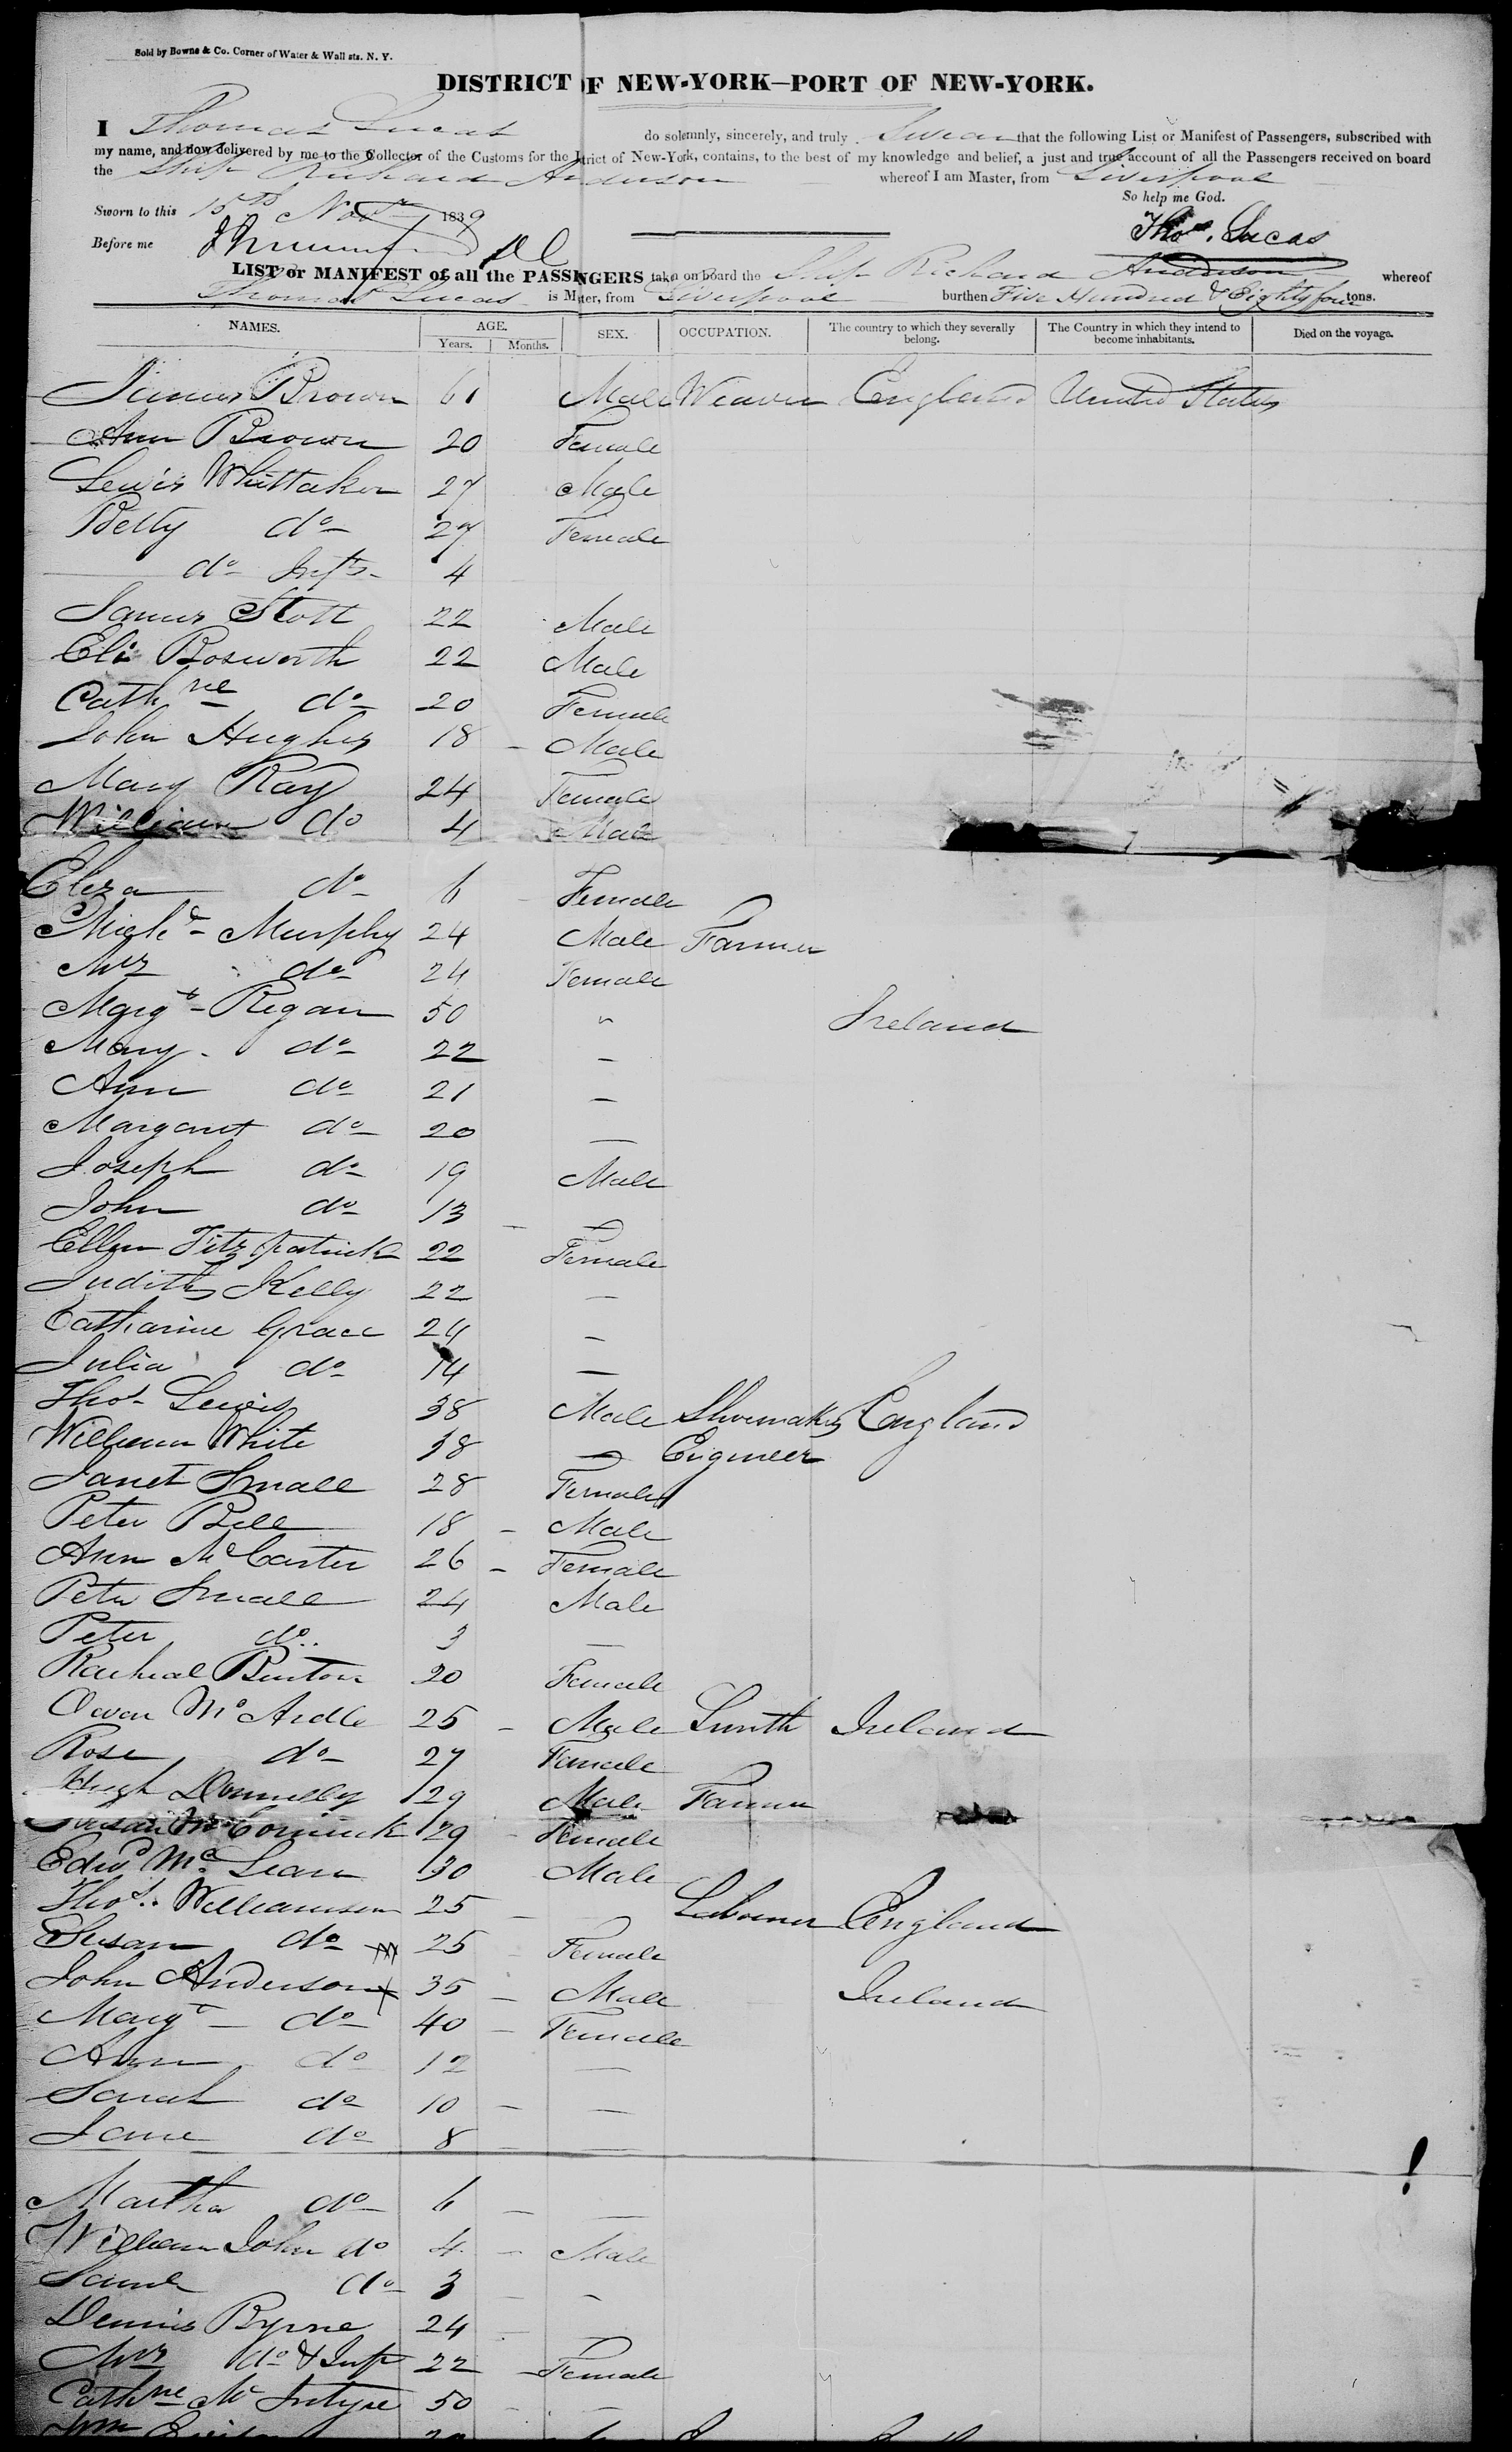 Sold by Bowne & Co. Corner of Water & Wall sts. N. Y.
DISTRICT OF NEW-YORK—PORT OF NEW-YORK.
I Thomas Lucas do solemnly, sincerely, and truly Swear that the following List or Manifest of Passengers, subscribed with
my name, and now delivered by me to the Collector of the Customs for the trict of New-York, contains, to the best of my knowledge and belief, a just and true account of all the Passengers received on board
the Ship Richard Anderson whereof I am Master, from Liverpool
So help me God.
Sworn to this 15th Novr 1839
Thos. Lucas
Before me
LIST or MANIFEST of all the PASSENGERS taken on board the Ship Richard Anderson whereof
Thomas Lucas is Mter, from Liverpool burthen Five Hundred & Eighty four tons.
NAMES. AGE. SEX. OCCUPATION. The country to which they severally belong. The Country in which they intend to become inhabitants. Died on the voyage.
Years. Months.
James Brown 61 Male Weaver England United States
Ann Brown 20 Female
Lewis Whittaker 27 Male
Betty do 27 Female
do Infts 4
James Stott 22 Male
Eli Bosworth 22 Male
Cathne do 20 Female
John Hughes 18 - Male
Mary Ray 24 Female
William do 4 Male
Eliza do 6 Female
Michl Murphy 24 Male Farmer
Mrs do 24 Female
Margt Regan 50 " Ireland
Mary do 22 —
Ann do 21 —
Margaret do 20 —
Joseph do 19 Male
John do 13 - —
Ellen Fitzpatrick 22 Female
Judith Kelly 22 —
Catharine Grace 24 —
Julia do 14 —
Thos Lewis 38 Male Shoemaker England
William White 38 — Engineer
Janet Small 28 Female
Peter Bell 18 - Male
Ann McCarter 26 - Female
Peter Small 24 Male
Peter do 3 —
Racheal Burton 20 Female
Owen McArdle 25 - Male Smith Ireland
Rose do 27 Female
Hugh Donnelly 29 Male Farmer
Susan McCormick 29 - Female
Edwd McLean 30 Male
Thos Williamson 25 - Labourer England
Susan do 25 - Female
John Anderson 35 - Male Ireland
Margt do 40 - Female
Ann do 12 —
Sarah do 10 - —
Jane do 8 - —
Martha do 6 - —
William John do 4 - Male
Saml do 3 - —
Dennis Byrne 24 - —
Mrs do & Inft 22 - Female
Cathne McIntyre 50 - —
Wm